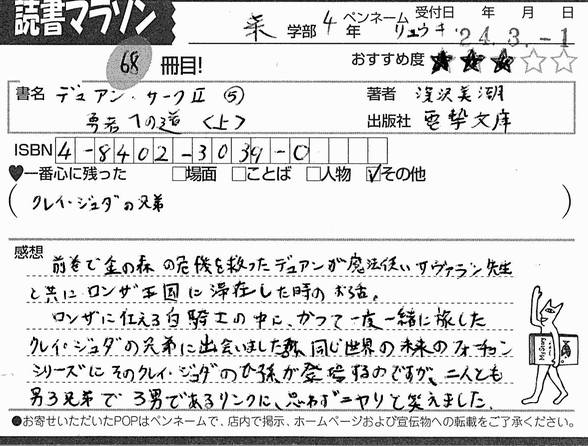 読書マラソン
薬 学部 4 年 ペンネーム リュウキ. 受付日 年 月 日
24.3.-1
68 冊目!
おすすめ度 ★★★☆☆
書名 デュアン・サークⅡ ⑤
勇者への道 <上>
著者 深沢美潮
出版社 電撃文庫
ISBN 4-8402-3039-0
♥一番心に残った □場面 □ことば □人物 ☑その他
(クレイ・ジュダの兄弟)
感想
前巻で金の森の危機を救ったデュアンが魔法使いサヴァラン先生
と共にロンザ王国に滞在した時のお話。
ロンザに仕える白騎士の中に、かつて一度一緒に旅した
クレイ・ジュダの兄弟に出会いました 同じ世界の未来のフォーチュン
シリーズにそのクレイ・ジュダのひ孫が登場するのですが、二人とも
男3兄弟で3男であるリンクに、思わずニヤリと笑えました.
Mystery
●お寄せいただいたPOPはペンネームで、店内で掲示、ホームページおよび宣伝物への転載をご了承ください。